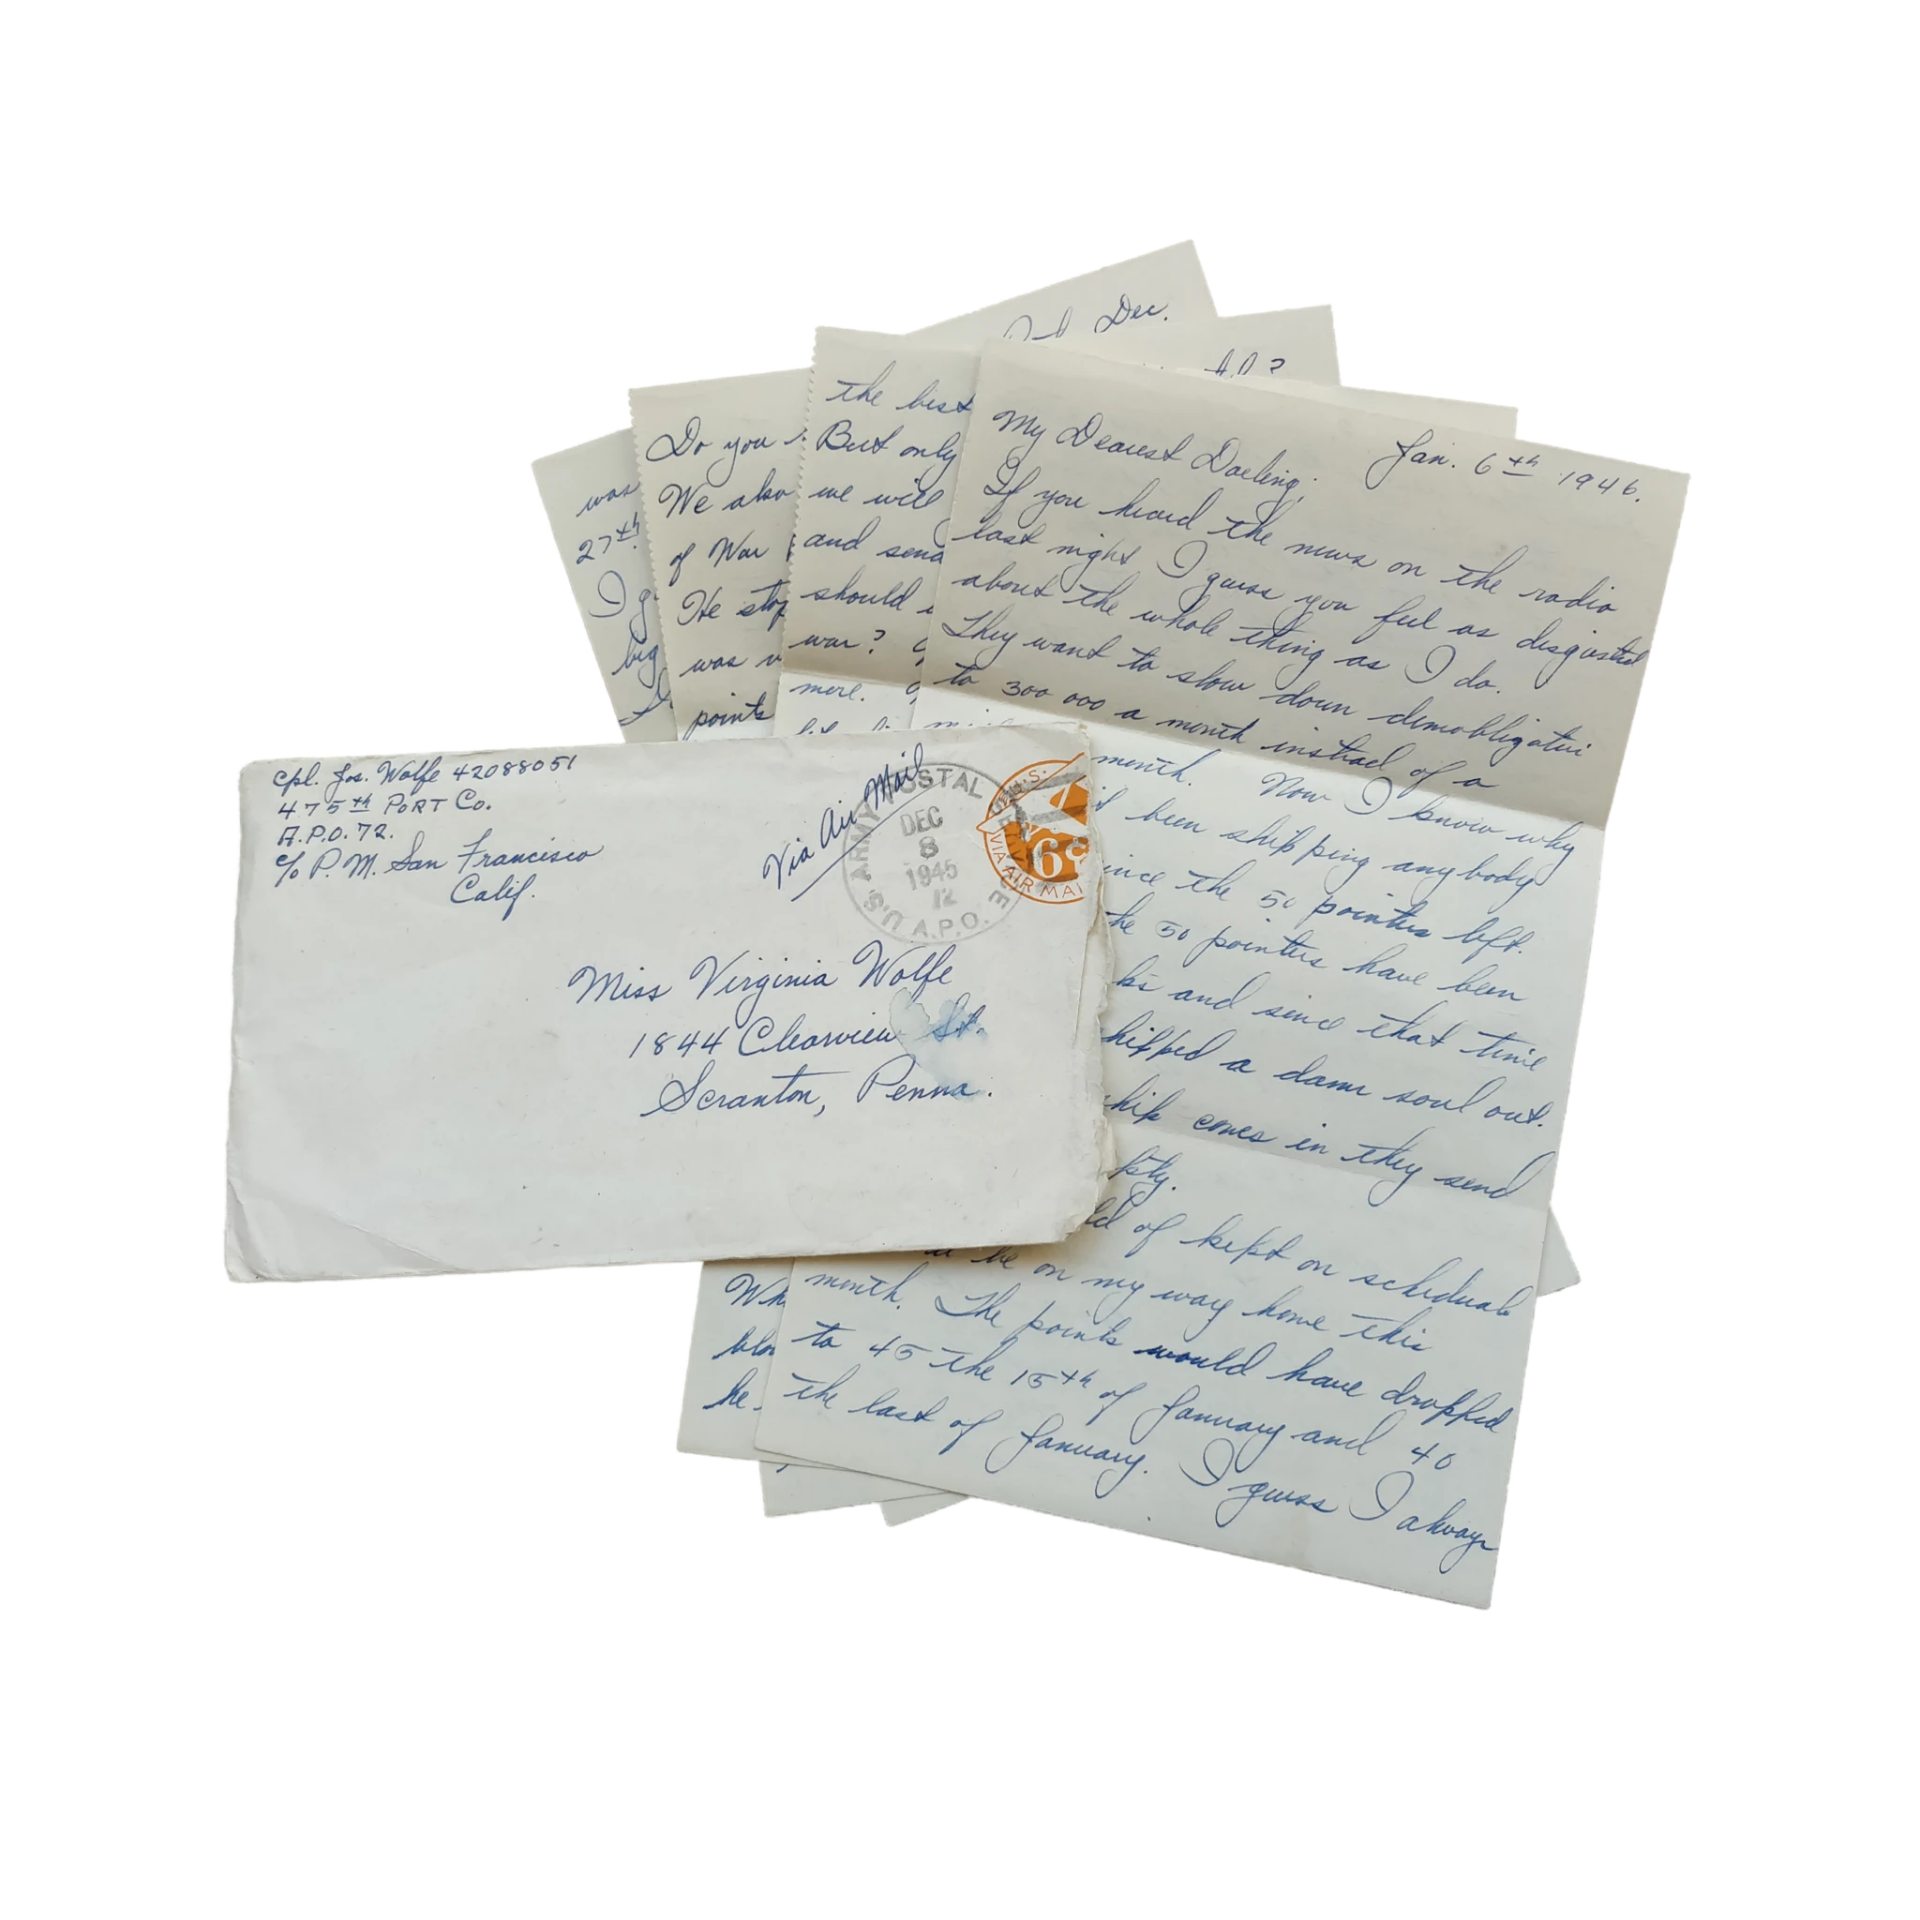 Cpl. Jos. Wolfe 42088051
475th PORT Co.
A.P.O. 72.
c/o P.M. San Francisco
Calif.
Via Air Mail
U.S. ARMY POSTAL
A.P.O.
DEC
8
1945
12
U.S.
6¢
VIA AIR MAI
Miss Virginia Wolfe
1844 Clearview St.
Scranton, Penna.
My Dearest Darling; Jan. 6th 1946.
If you heard the news on the radio
last night I guess you feel as disgusted
about the whole thing as I do.
They want to slow down
to 300 000 a month instead of a
month. Now I know why
been shipping anybody
ince the 50 pointers left.
he 50 pointers have been
ks and since that time
hipped a damn soul out.
hip comes in they send
pty.
ld of kept on schedual
be on my way home this
month. The points would have dropped
to 45 the 15th of January and 40
the last of January. I guess I always
the best
But only
we will
and send
should
war?
more.
Do you
We also
of War
He stop
was
points
was
27th.
I g
big
Dec.
Wh
blo
he